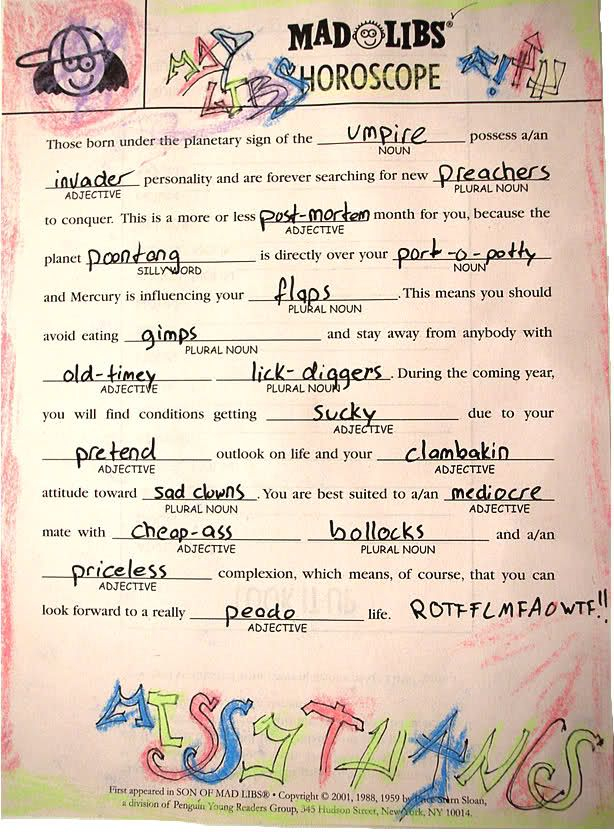 MAD LIBS®
MAD LIBS HOROSCOPE
Those born under the planetary sign of the umpire possess a/an
NOUN
invader personality and are forever searching for new preachers
ADJECTIVE PLURAL NOUN
to conquer. This is a more or less post-mortem month for you, because the
ADJECTIVE
planet poontang is directly over your port-o-potty
SILLY WORD NOUN
and Mercury is influencing your flaps. This means you should
PLURAL NOUN
avoid eating gimps and stay away from anybody with
PLURAL NOUN
old-timey lick-diggers. During the coming year,
ADJECTIVE PLURAL NOUN
you will find conditions getting sucky due to your
ADJECTIVE
pretend outlook on life and your clambakin
ADJECTIVE ADJECTIVE
attitude toward sad clowns. You are best suited to a/an mediocre
PLURAL NOUN ADJECTIVE
mate with cheap-ass bollocks and a/an
ADJECTIVE PLURAL NOUN
priceless complexion, which means, of course, that you can
ADJECTIVE
look forward to a really peado life. ROTFFLMFAOWTF!!
ADJECTIVE
MISSYTHANGS
First appeared in SON OF MAD LIBS® • Copyright © 2001, 1988, 1959 by Price Stern Sloan,
a division of Penguin Young Readers Group, 345 Hudson Street, New York, NY 10014.